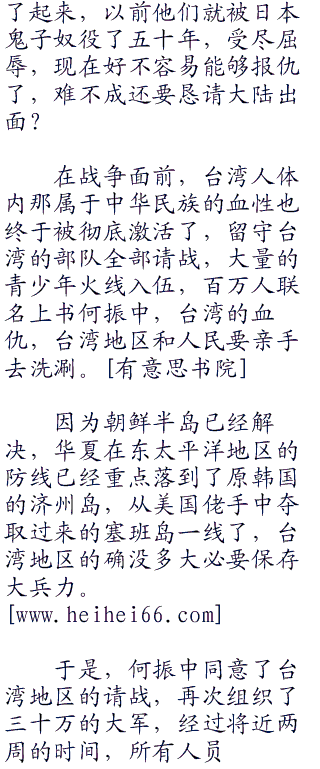 了起来，以前他们就被日本
鬼子奴役了五十年，受尽屈
辱，现在好不容易能够报仇
了，难不成还要恳请大陆出
面？
在战争面前，台湾人体
内那属于中华民族的血性也
终于被彻底激活了，留守台
湾的部队全部请战，大量的
青少年火线入伍，百万人联
名上书何振中，台湾的血
仇，台湾地区和人民要亲手
去洗涮。[有意思书院]
因为朝鲜半岛已经解
决，华夏在东太平洋地区的
防线已经重点落到了原韩国
的济州岛，从美国佬手中夺
取过来的塞班岛一线了，台
湾地区的确没多大必要保存
大兵力。
[www.heihei66.com]
于是，何振中同意了台
湾地区的请战，再次组织了
三十万的大军，经过将近两
周的时间，所有人员